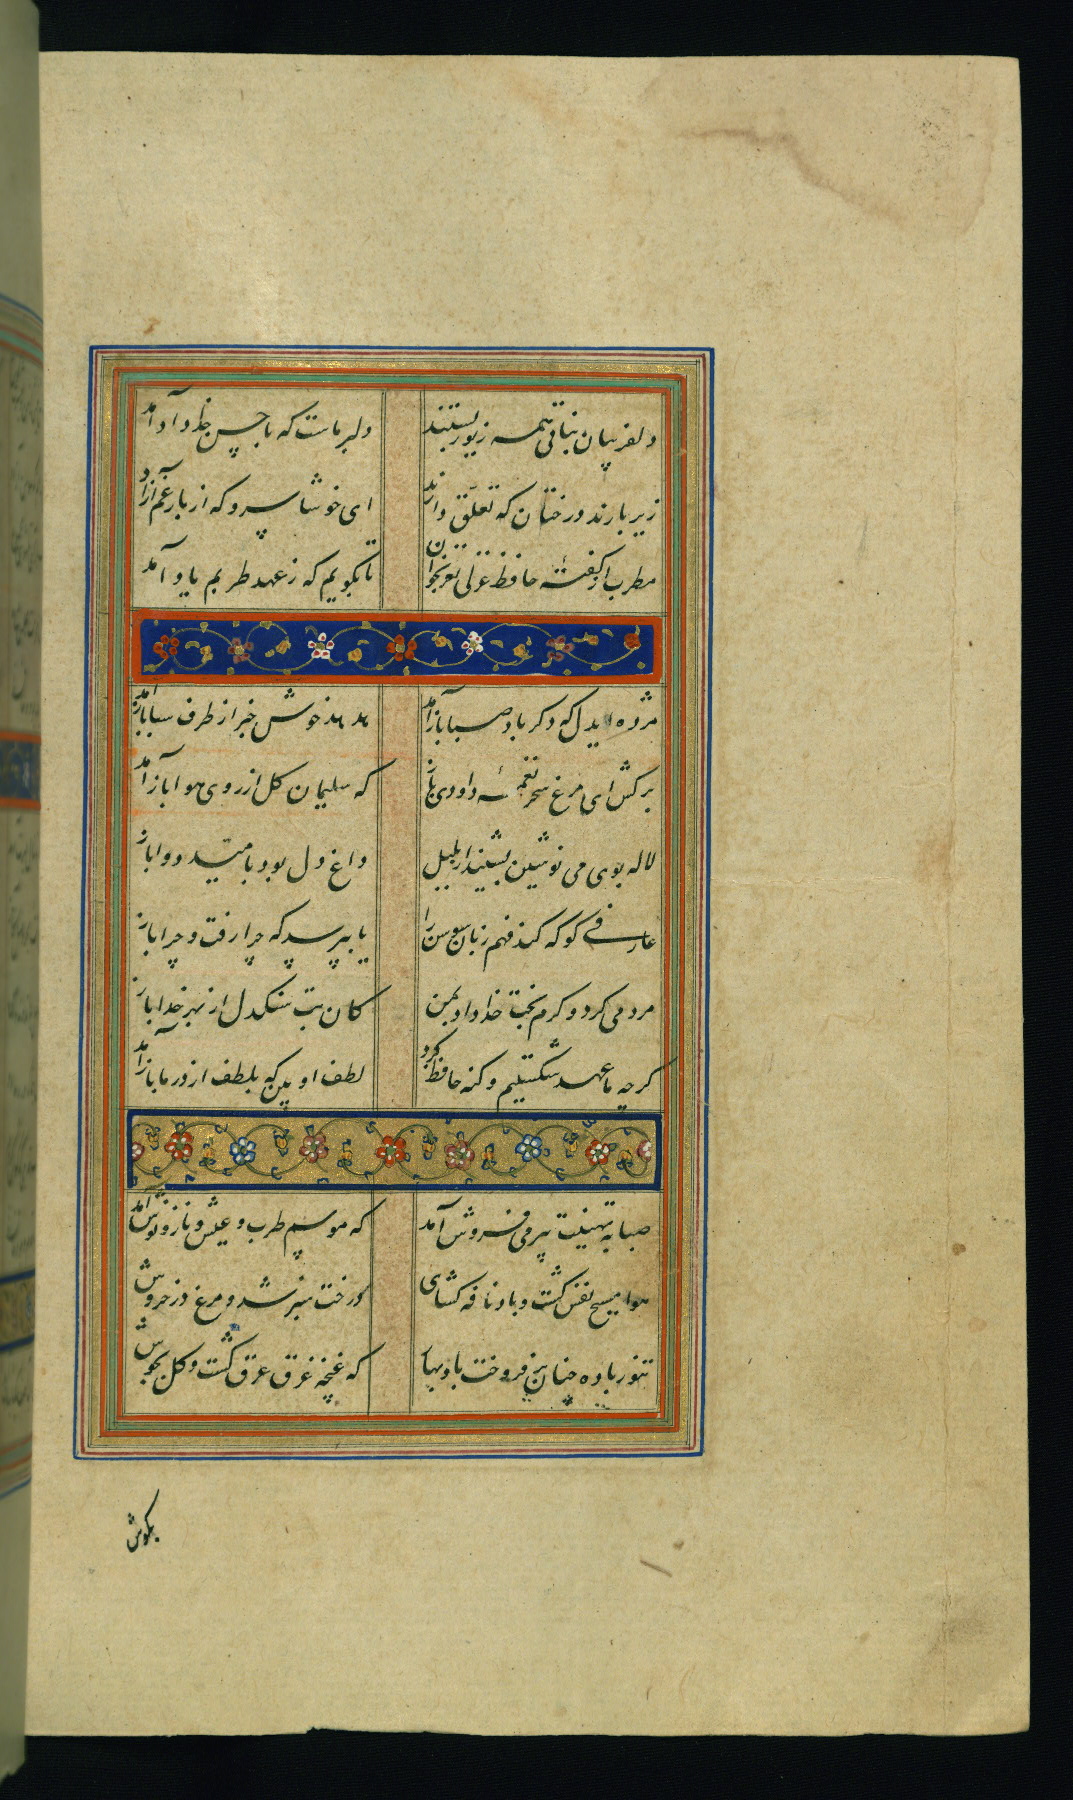 دلفریبان نباتی همه زیور بستند دلبر ماست که با حسن خداداد آمد
زیر بارند درختان که تعلق دارند ای خوشا سرو که از بار غم آزاد آمد
مطرب از گفتهٔ حافظ غزلی نغز بخوان تا بگویم که ز عهد طربم یاد آمد
مژده ای دل که دگر باد صبا باز آمد هدهد خوش خبر از طرف سبا باز آمد
برکش ای مرغ سحر نغمهٔ داودی باز که سلیمان گل از روی هوا باز آمد
لاله بوی می نوشین بشنید از بلبل داغ دل بود بامید دوا باز
عارفی کو که کند فهم زبان سوسن را تا بپرسد که چرا رفت و چرا باز
مردمی کرد و کرم بخت خداداد بمن کان بت سنگدل از بهر خدا باز
گرچه ما عهد شکستیم و گنه حافظ کرد لطف او بین که بلطف از در ما باز آمد
صبا به تهنیت پیر می فروش آمد که موسم طرب و عیش و ناز و نوش آمد
هوا مسیح نفس گشت و باد نافه گشای درخت سبز شد و مرغ در خروش
تنور باده چنان برفروخت باد بهار که غنچه غرق عرق گشت و گل بجوش
بگوش